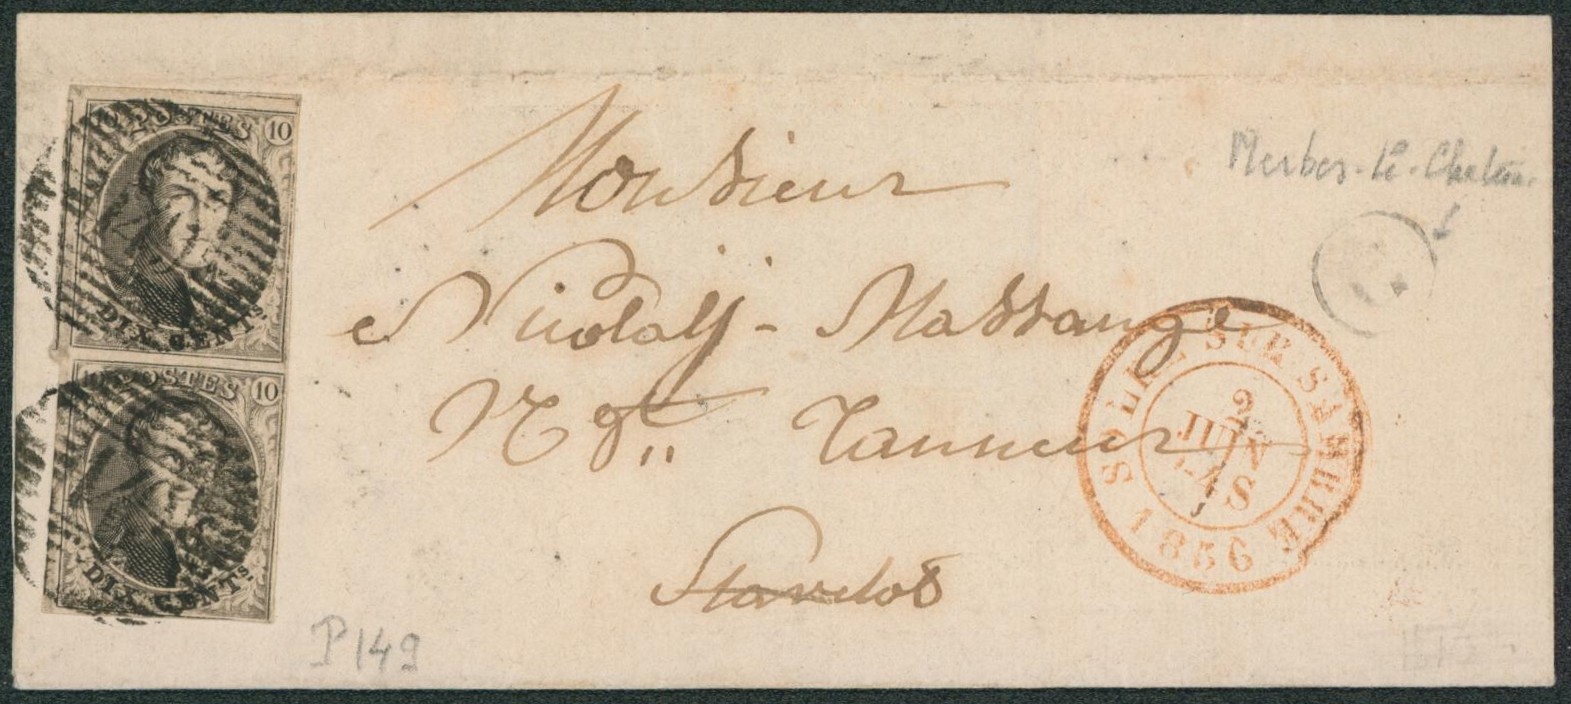 POSTES 10
DIX CENTS
10 POSTES 10
DIX CENTS
Monsieur
Nicolaÿ - Massange
Ngt. Tanneur
Stavelot
Merbes-le-Chateau
SOLRE SUR SAMBRE
2
JUIN
1856
P149